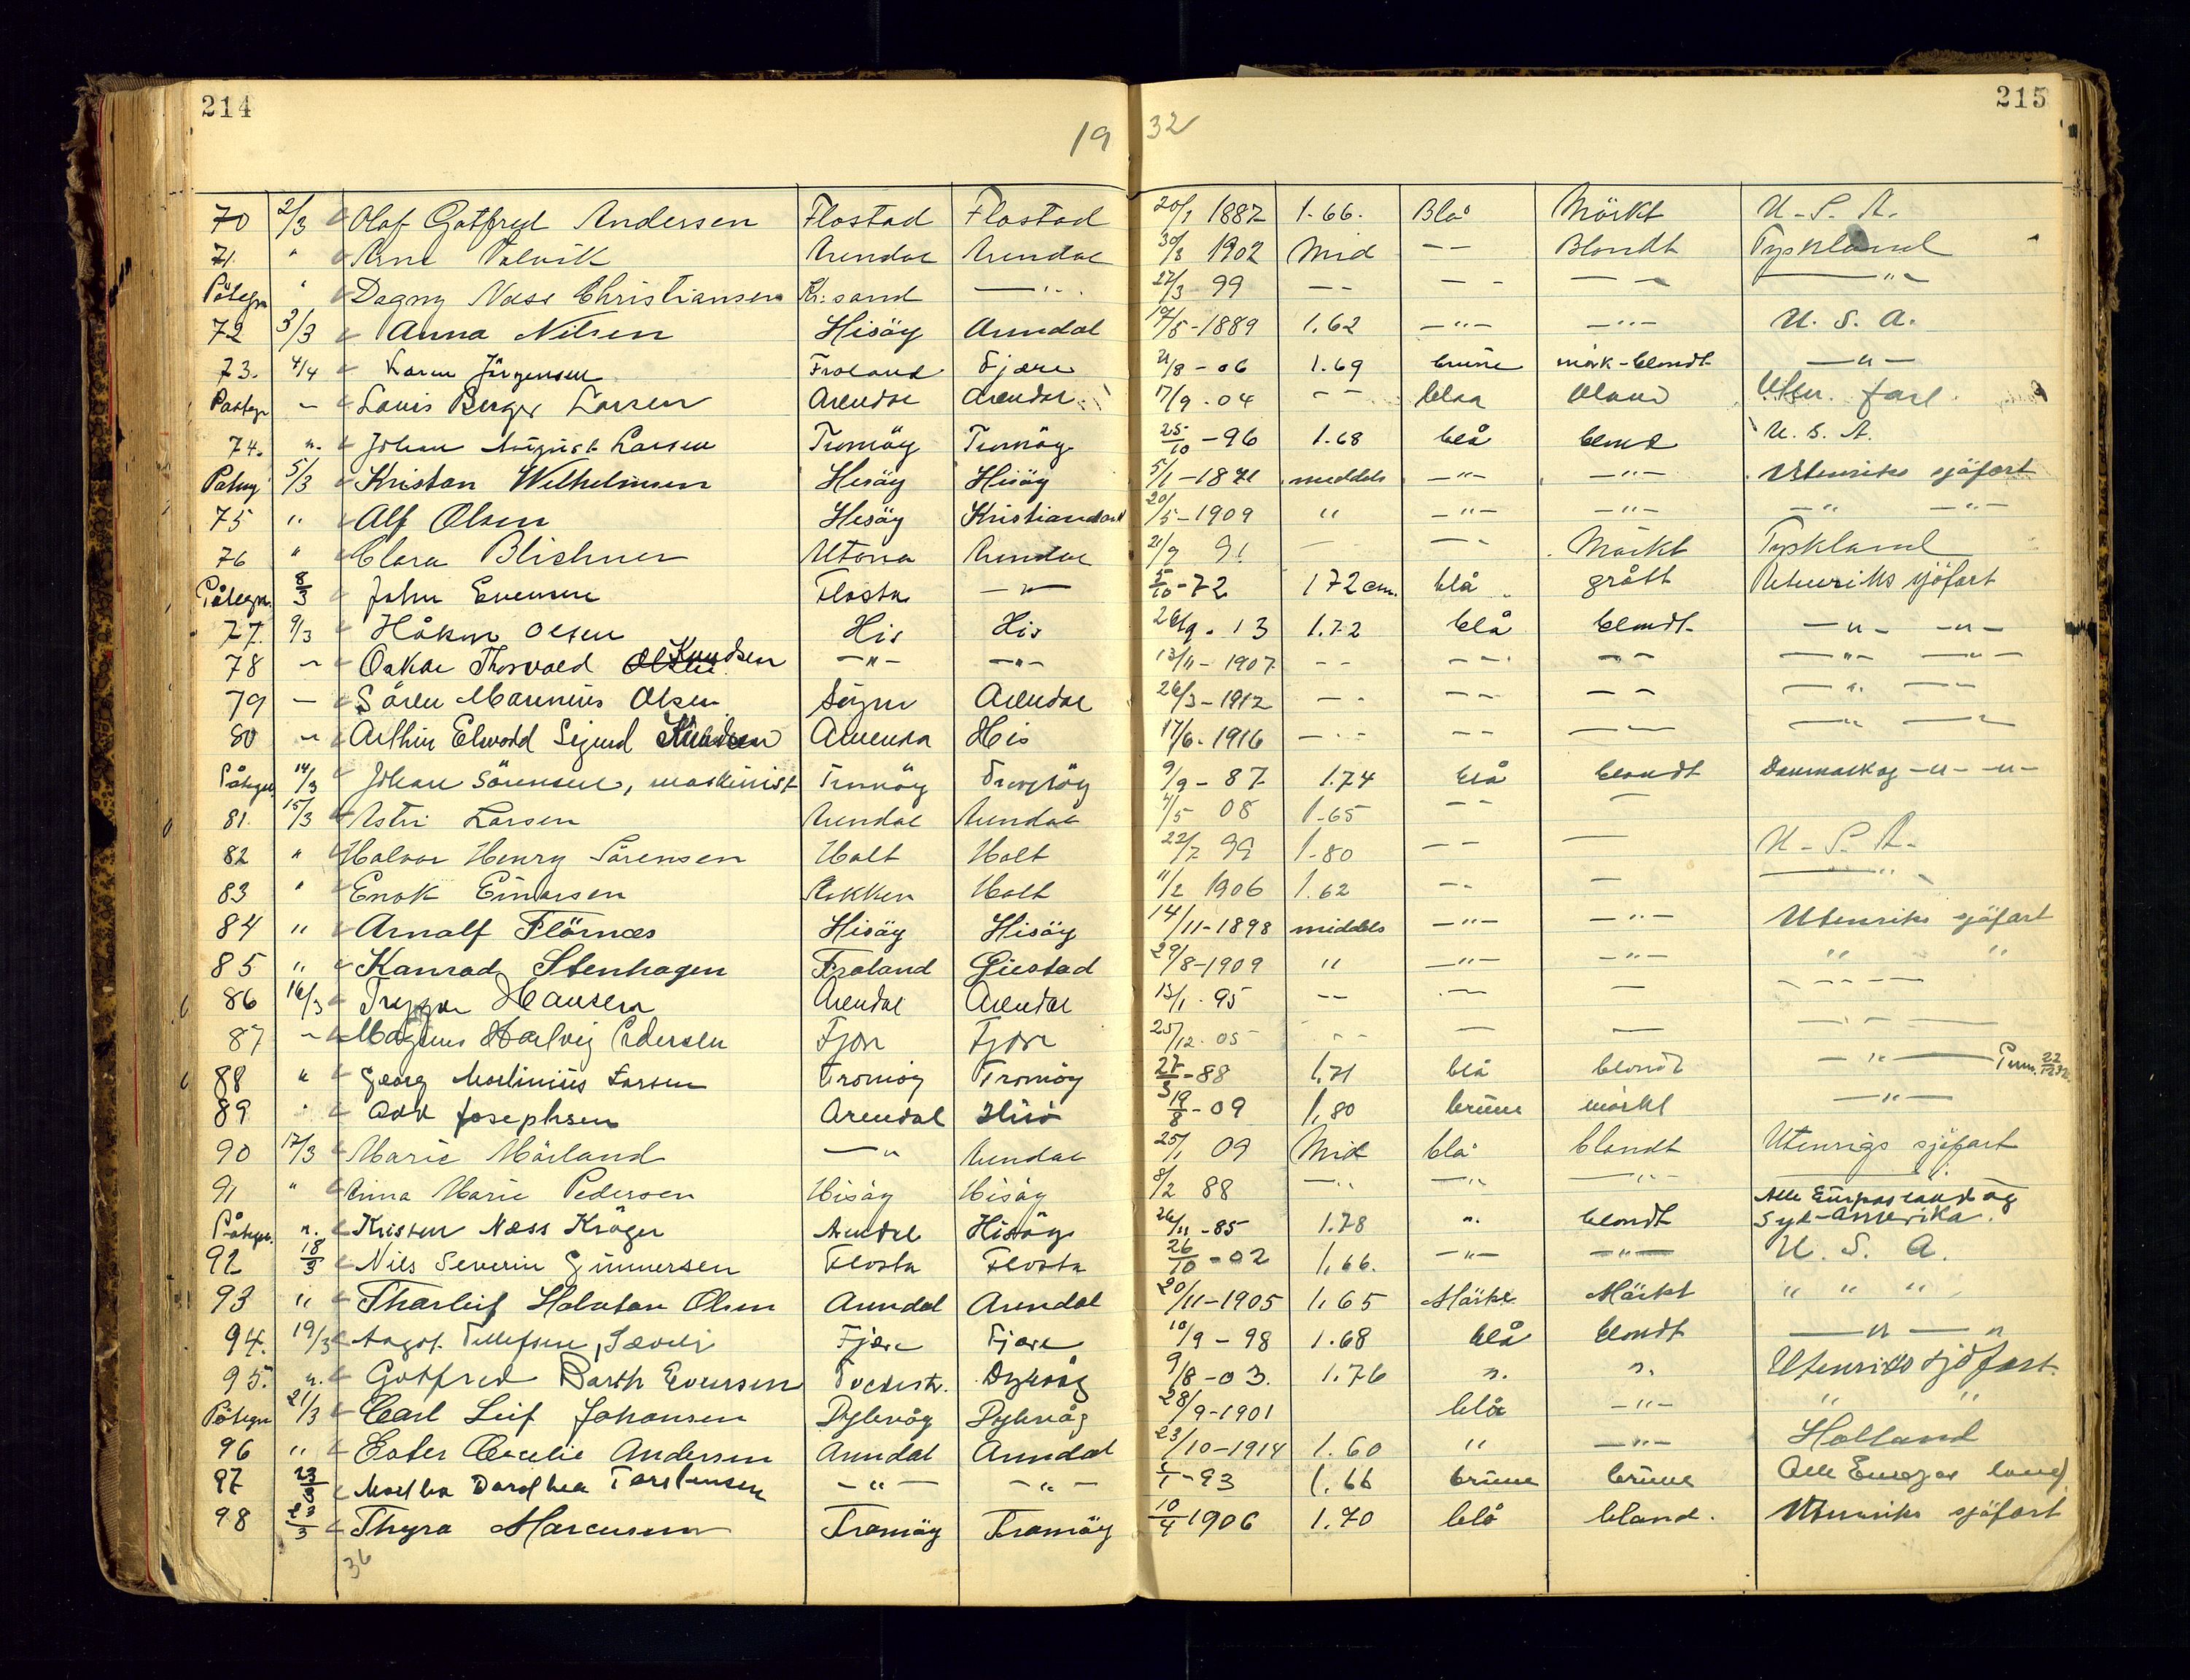 214
215
19 32
70 2/3 Olaf Gotfred Andersen Flostad Flostad 20/1 1887 1.66. Blå Mörkt U.S.A.
71. " Arne Valvik Arendal Arendal 30/8 1902 Mid — — Blondt Tyskland
Påtegn " Dagny Næss Christiansen Kr:sand —"— 27/3 - 99 — — — — — — —"—
72 3/3 Anna Nilsen Hisöy Arendal 19/5 - 1889 1.62 —"— —"— U.S.A.
73. 4/4 Karen Jörgensen Froland Fjære 21/8 - 06 1.69 brune mörk-blondt —"—
Paategn — Louis Berger Larsen Arendal Arendal 17/9 - 04 — — blaa blond Uten. fart.
74. ". Johan August Larsen Tromöy Tromöy 25/10 - 96 1.68 blå blond U.S.A.
Påtegn 5/3 Kristan Wilhelmsen Hisöy Hisöy 5/1 - 1871 middels —"— —"— Utenriks sjöfart
75 " Alf Olsen Hisöy Kristiansand 20/5 - 1909 " —"— —"— —"— —"—
76 " Clara Blichner Arendal 21/9 91 — — — Mörkt Tyskland
Påtegn. 8/3 John Evensen Flosta —"— 5/10 - 72 172 cm. blå grått Utenriks sjöfart
77. 9/3 Håkon Olsen His His 26/9 - 13 1.72 blå blondt —"— —"—
78 — Oskar Thorvald Knudsen —"— —"— 13/11 - 1907 — — — — — — —"— —"—
79 — Sören Marinius Olsen Sögne Arendal 26/3 - 1912 — — — — — — —"— —
80 — Arthur Elwood Sigurd Knudsen Amerika His 17/6 - 1916 — — — — — —"— —
Påtegn. 14/3 Johan Sörensen, maskinist Tromöy Tromöy 9/9 - 87 1.74 blå blondt Danmark og —"— —"—
81. 15/3 Astri Larsen Arendal Arendal 4/5 08 1.65 — — —
82 " Halvor Henry Sörensen Holt Holt 22/7 99 1.80 — — — U.S.A.
83 " Enok Einarsen Holt 11/2 1906 1.62 — — — —"—
84 " Arnolf Flörnæs Hisöy Hisöy 14/11 - 1898 middels —"— —"— Utenriks sjöfart
85 " Konrad Stenhagen Froland Öiestad 29/8 - 1909 " —"— —"— " "
86 16/3 Trygve Hansen Arendal Arendal 13/1 - 95 — — — — — — — —
87 — Magnus Hartvig Pedersen Fjære Fjære 25/12 - 05 — — — — — — —
88 " Georg Martinius Larsen Tromöy Tromöy 27/3 - 88 1,71 blå blondt —"—
89 " Odd Josephsen Arendal Hisö 19/8 - 09 1,80 brune mörkt —"—
90 17/3 Marie Mörland —"— Arendal 25/1 09 Mid blå blondt Utenrigs sjöfart
91 " Anna Marie Pedersen Hisöy Hisöy 8/2 88 —"— —"— —"— "
Påtegn. ". Kristen Næss Kröger Arendal Hisöy 26/11 - 85 1.78 ". blondt Alle Europas land og Syd-Amerika.
92 18/3 Nils Severin Gunnersen Flosta Flosta 26/10 - 02 1,66. —"— —"— U.S.A.
93 " Tharleif Halvtan Olsen Arendal Arendal 20/11 - 1905 1,65 Mörke Mörkt " " "
94. 19/3 Aagot Tellefsen, Fjære Fjære 10/9 - 98 1.68 blå blondt —"— "
95. ". Gotfred Barth Evensen Tvedestr. Dyvåg 9/8 - 03. 1.76 ". ". Utenriks sjöfart.
Påtegn 21/3 Carl Leif Johansen Dybvåg Dybvåg 28/9 - 1901 blå —"— " "
96 " Ester Cecelie Andersen Arendal Arendal 23/10 - 1914 1.60 " —"— Holland
97 23/3 Martha Dorothea Torstensen —"— —"— - 93 1,66 brune brune Alle Europas land
98 23/3 Thyra Marcussen Tromöy Tromöy 10/4 1906 1.70 blå blond. Utenriks sjöfart
36